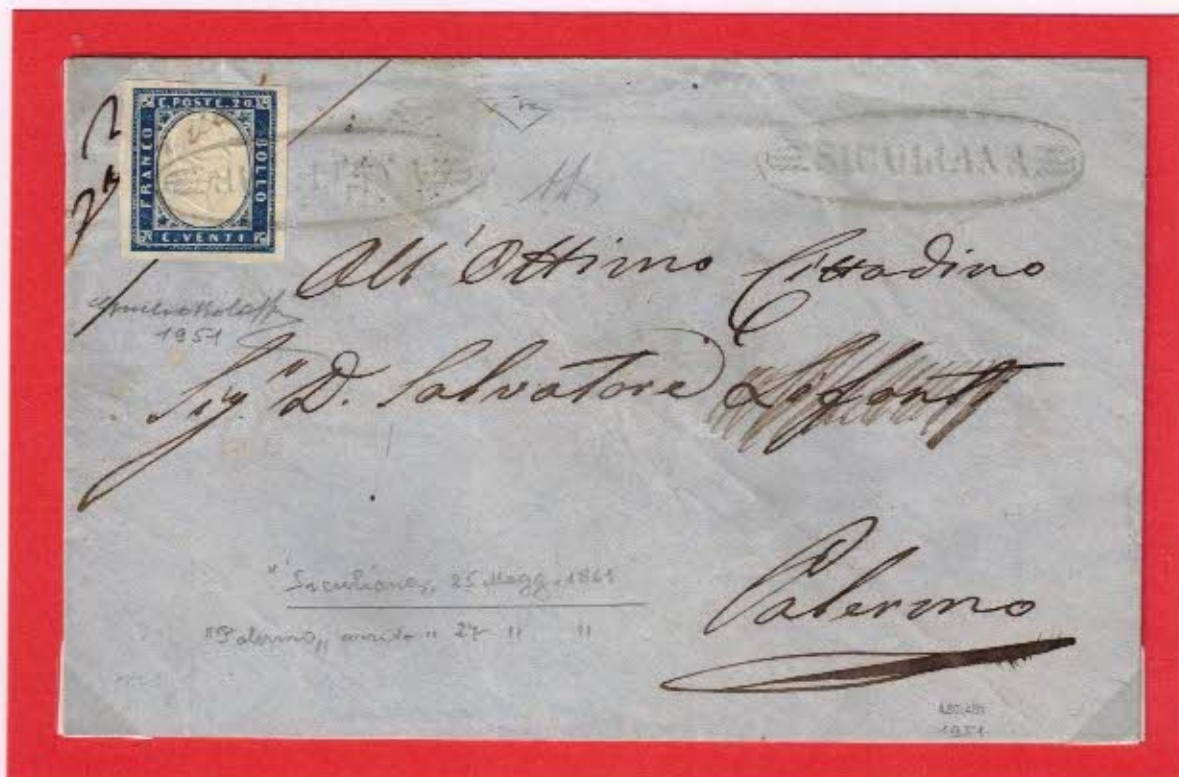 C. POSTE. 20
FRANCO
BOLLO
C. VENTI
SICULIANA
All' Ottimo Cittadino
1951
Sigr D. Salvatore
Palermo
"Siculiana,, 25 Magg. 1861
"Palermo,, arrivo " 27 " "
1951